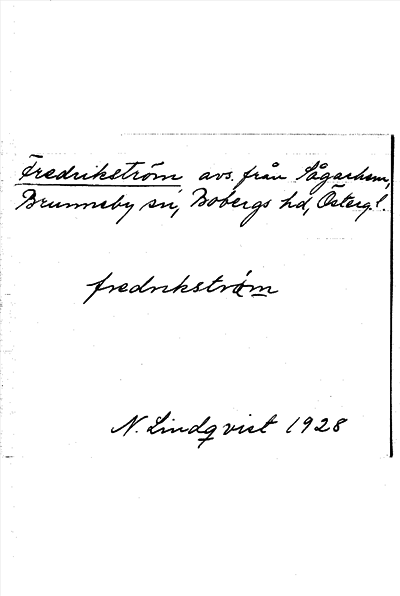 Fredrikström avs. från
Brunneby sn, Bobergs hd, Österg!.
fredrikström
N. Lindqvist 1928